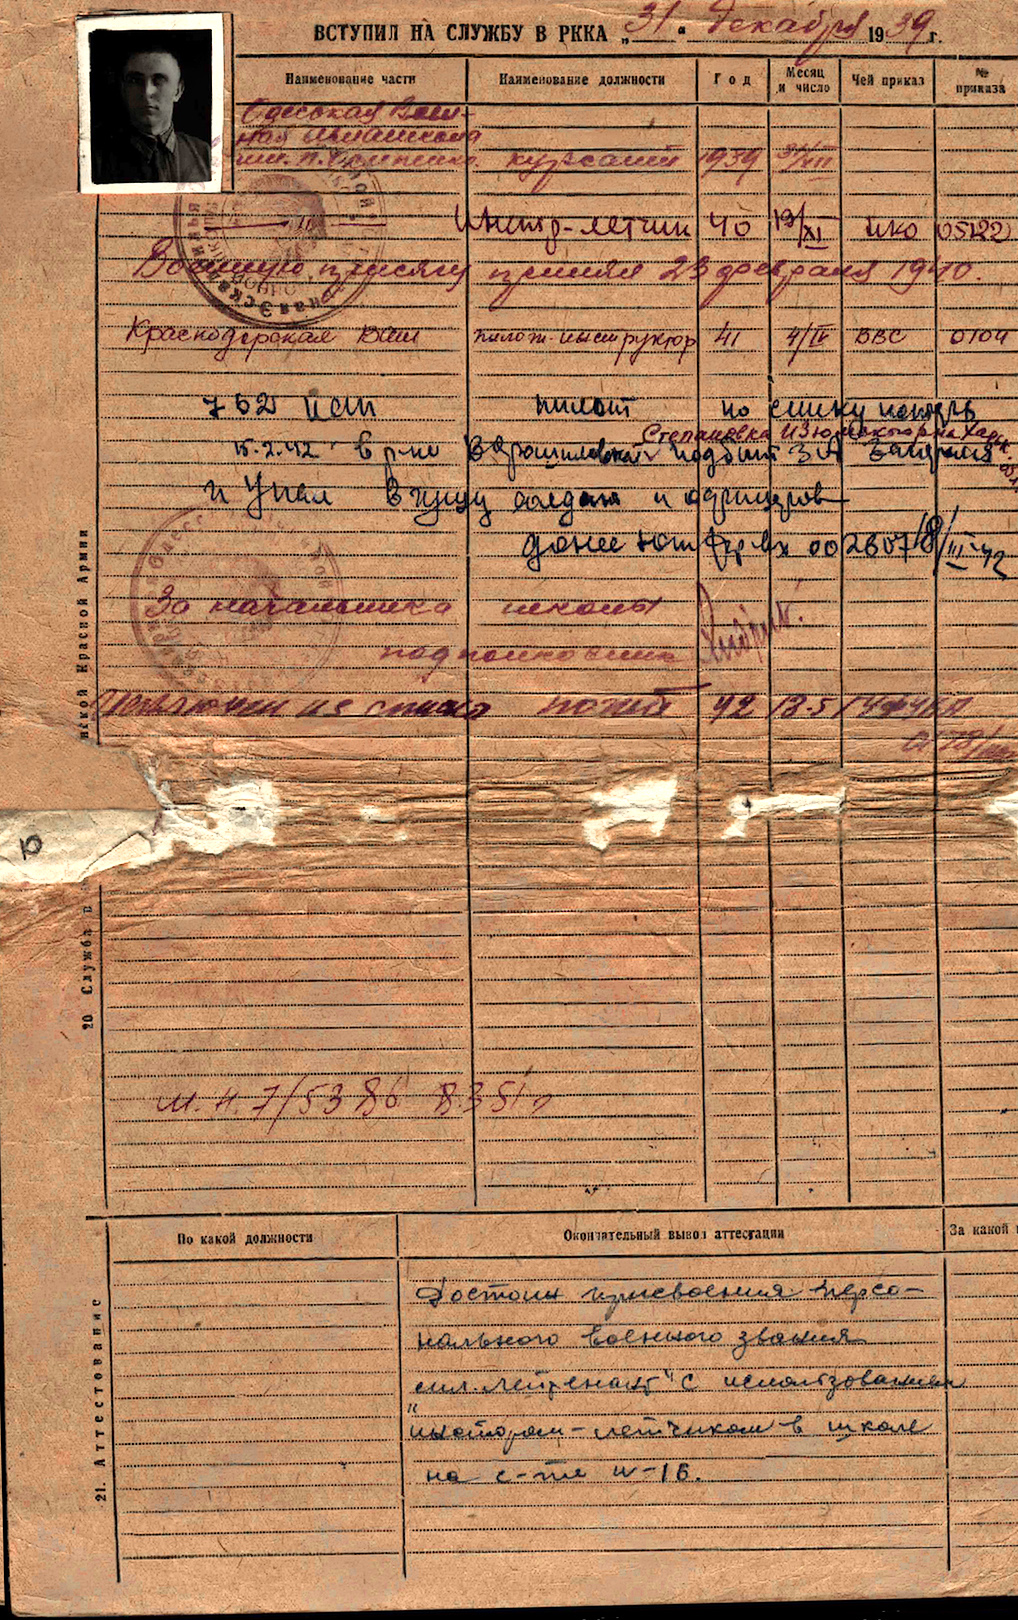 ВСТУПИЛ НА СЛУЖБУ В РККА „31“ декабря 1939 г.
Наименование части Наименование должности Год Месяц и число Чей приказ № приказа
Одесская Воен-
ная
им. П. Осипенко. курсант 1939 31/XII
— " — Инстр-летчик 40 19/XI ОКО 05122
Военную присягу принял 23 февраля 1940.
Краснодарская ВАШ пилот-инструктор 41 4/IV ВВС 0104
762 ИАП пилот по списку
Степановка Изюмск
15.2.42 в р-не Ворошиловка подбит ЗА
и упал в гущу солдат и офицеров
донес Юж фр вх 002607 18/III-42
За начальника школы
подполковник
Исключен из списков 42 13.5 ГУФУКА
0173
20 Служба в
нской Красной Армии
ю
8.3.51г
По какой должности Окончательный вывод аттестации За какой
21. Аттестование
Достоин присвоения персо-
нального военного звания
„мл. лейтенант“ с использованием
инстором-летчиком в школе
на с-те И-16.